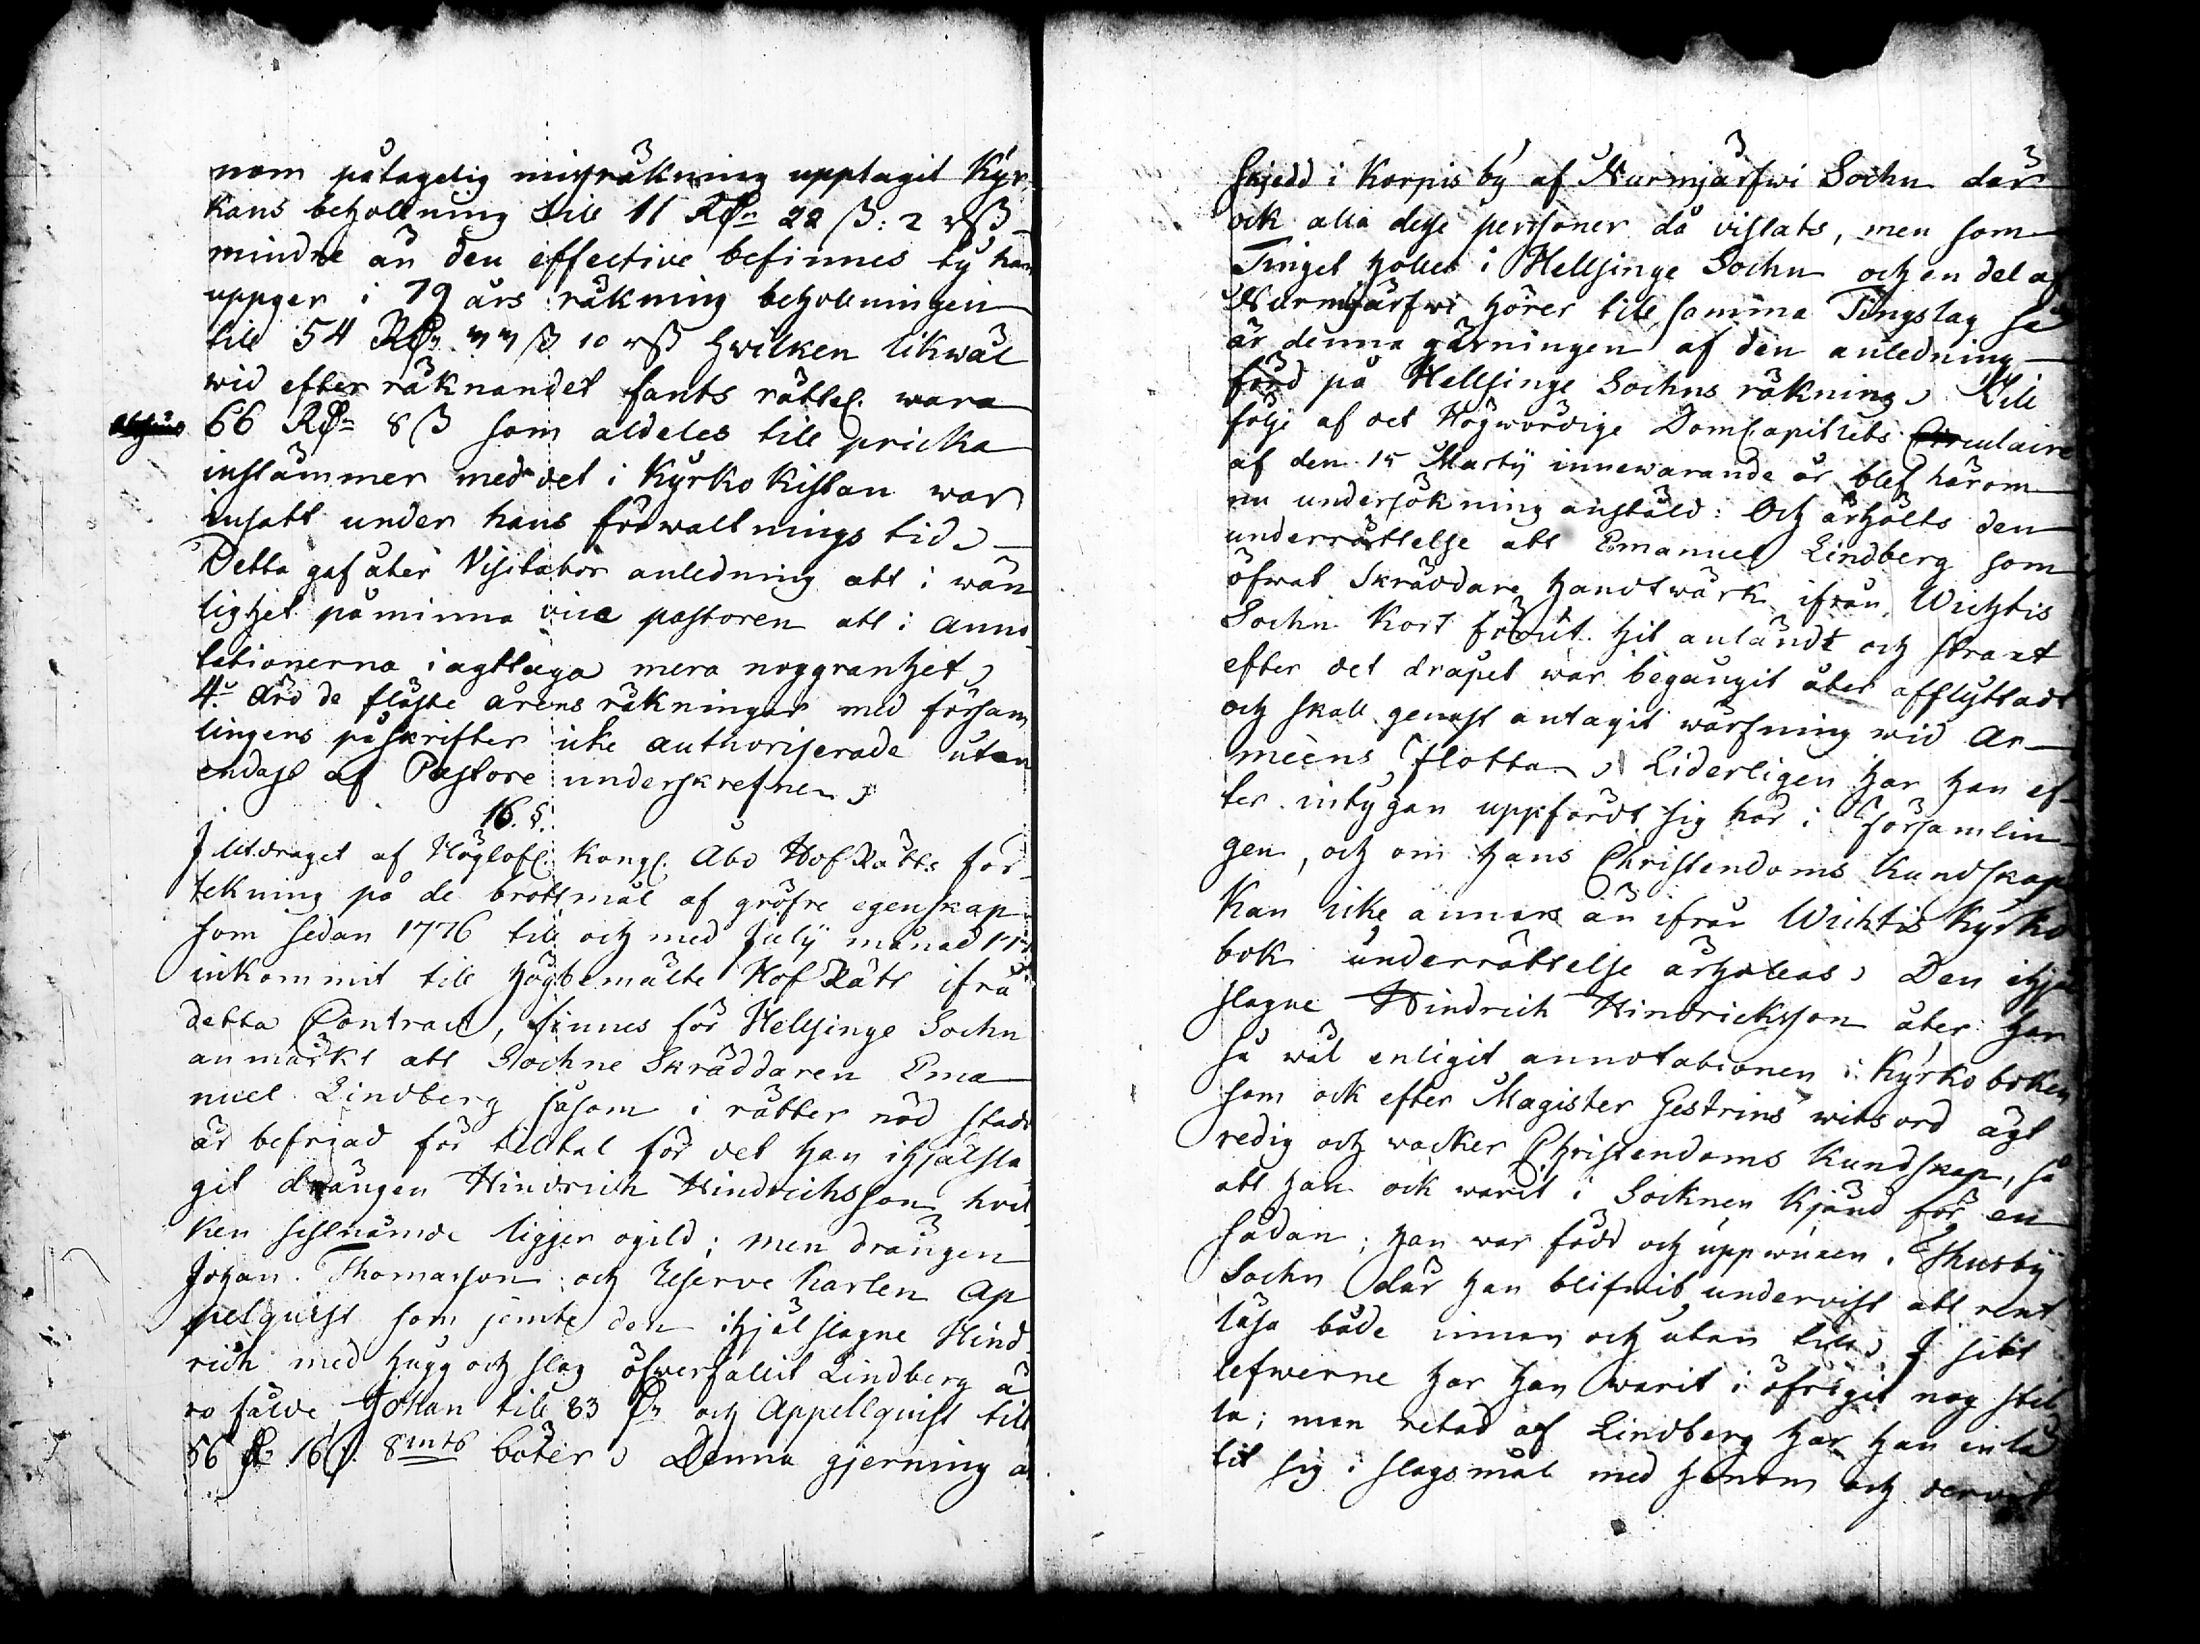 nom påtagelig misräkning upptagit Kyr-
kans behållning till 11 Rdr 22 ß: 2 rß
mindre än den effective befinnes ty han
uppger i 79 års räkning behållningen
till 54 Rdr 44 ß 10 rß hwilken likwäl
wid efter räknandet fants rättel. wara
66 Rdr 8 ß som aldeles till pricka
instämmer med det i Kyrko Kistan war
insatt under hans förwaltnings tid.
Detta gaf åter Visitator anledning att i wän
lighet påminna vice pastoren att i anno
tationerna iagttaga mera noggranhet,
4:o äro de fläste årens räkningar med försam
lingens påskrifter icke authoriserade utan
endast af Pastore underskrefne.
16. §.
I Utdraget af Höglofl. Kongl. Åbo HofRätts för-
tekning på de brottmål af gröfre egenskap
som sedan 1776 till och med Julÿ månad
inkommit till högbemälte HofRätt ifrå
detta Contract, finnes för Helsinge Sochn
anmärkt att Sochne Skräddaren Ema
nuel Lindberg såsom i rätter nöd stadd
är befriad för tilltal för det han ihjälsla
git drängen Hindrich Hindrichsson hvil
ken sistnämde ligger ogild; men drängen
Johan Thomasson och Reserve Karlen Ap
pelquist som jemte den ihjälslagne Hind
rich med hugg och slag öfwerfallit Lindberg ä
ro fälde, Johan till 83 Dr och Appellquist till
56 Dr 16 ß. 8mts böter, Denna gjerning ä
skjedd i Korpis by af Nurmjärfwi Sochn där
ock alla desse personer då vistats, men som
Tinget hålles i Hellsinge Sochn och en del af
Nurmjärfwi hörer till samma Tingslag så
är denna gärningen af den anledning
förd på Hellsinge Sochns räkning. Till
följe af det Högwördige DomCapitlets Circulaire
af den 15 Martÿ innewarande år blef härom
nu undersökning anstäld: Och ärhölts den
underrättelse att Emanuel Lindberg som
öfwat Skräddare handtwärk ifrån Wichtis
Sochn kort förut hit anländt och straxt
efter det dråpet war begångit åter afflyttadt
och skall genast antagit wärfning wid Ar-
meens flotta, Liderligen har han ef-
ter intygan uppfördt sig här i församlin-
gen, och om hans Christendoms kundskap
kan icke annars än ifrån Wichtis Kyrko
bok underrättelse ärhållas, Den ihjäl
slagne Hindrich Hindricksson åter har
så wäl enligit annotationen i Kyrkoboken
som ock efter Magister Gestrins witsord ägt
redig och wacker Christendoms Kundskap, så
att han ock warit i Socknen kjänd för en
sådan; han war född och uppwuxen i Thusby
Sochn där han blifwit underwist att rent
läsa både innan och utan till, I sitt
lefwerne har han warit i öfrigit nog stil
la; men retad af Lindberg har han inlå
tit sig i slagsmål med honom och derwid